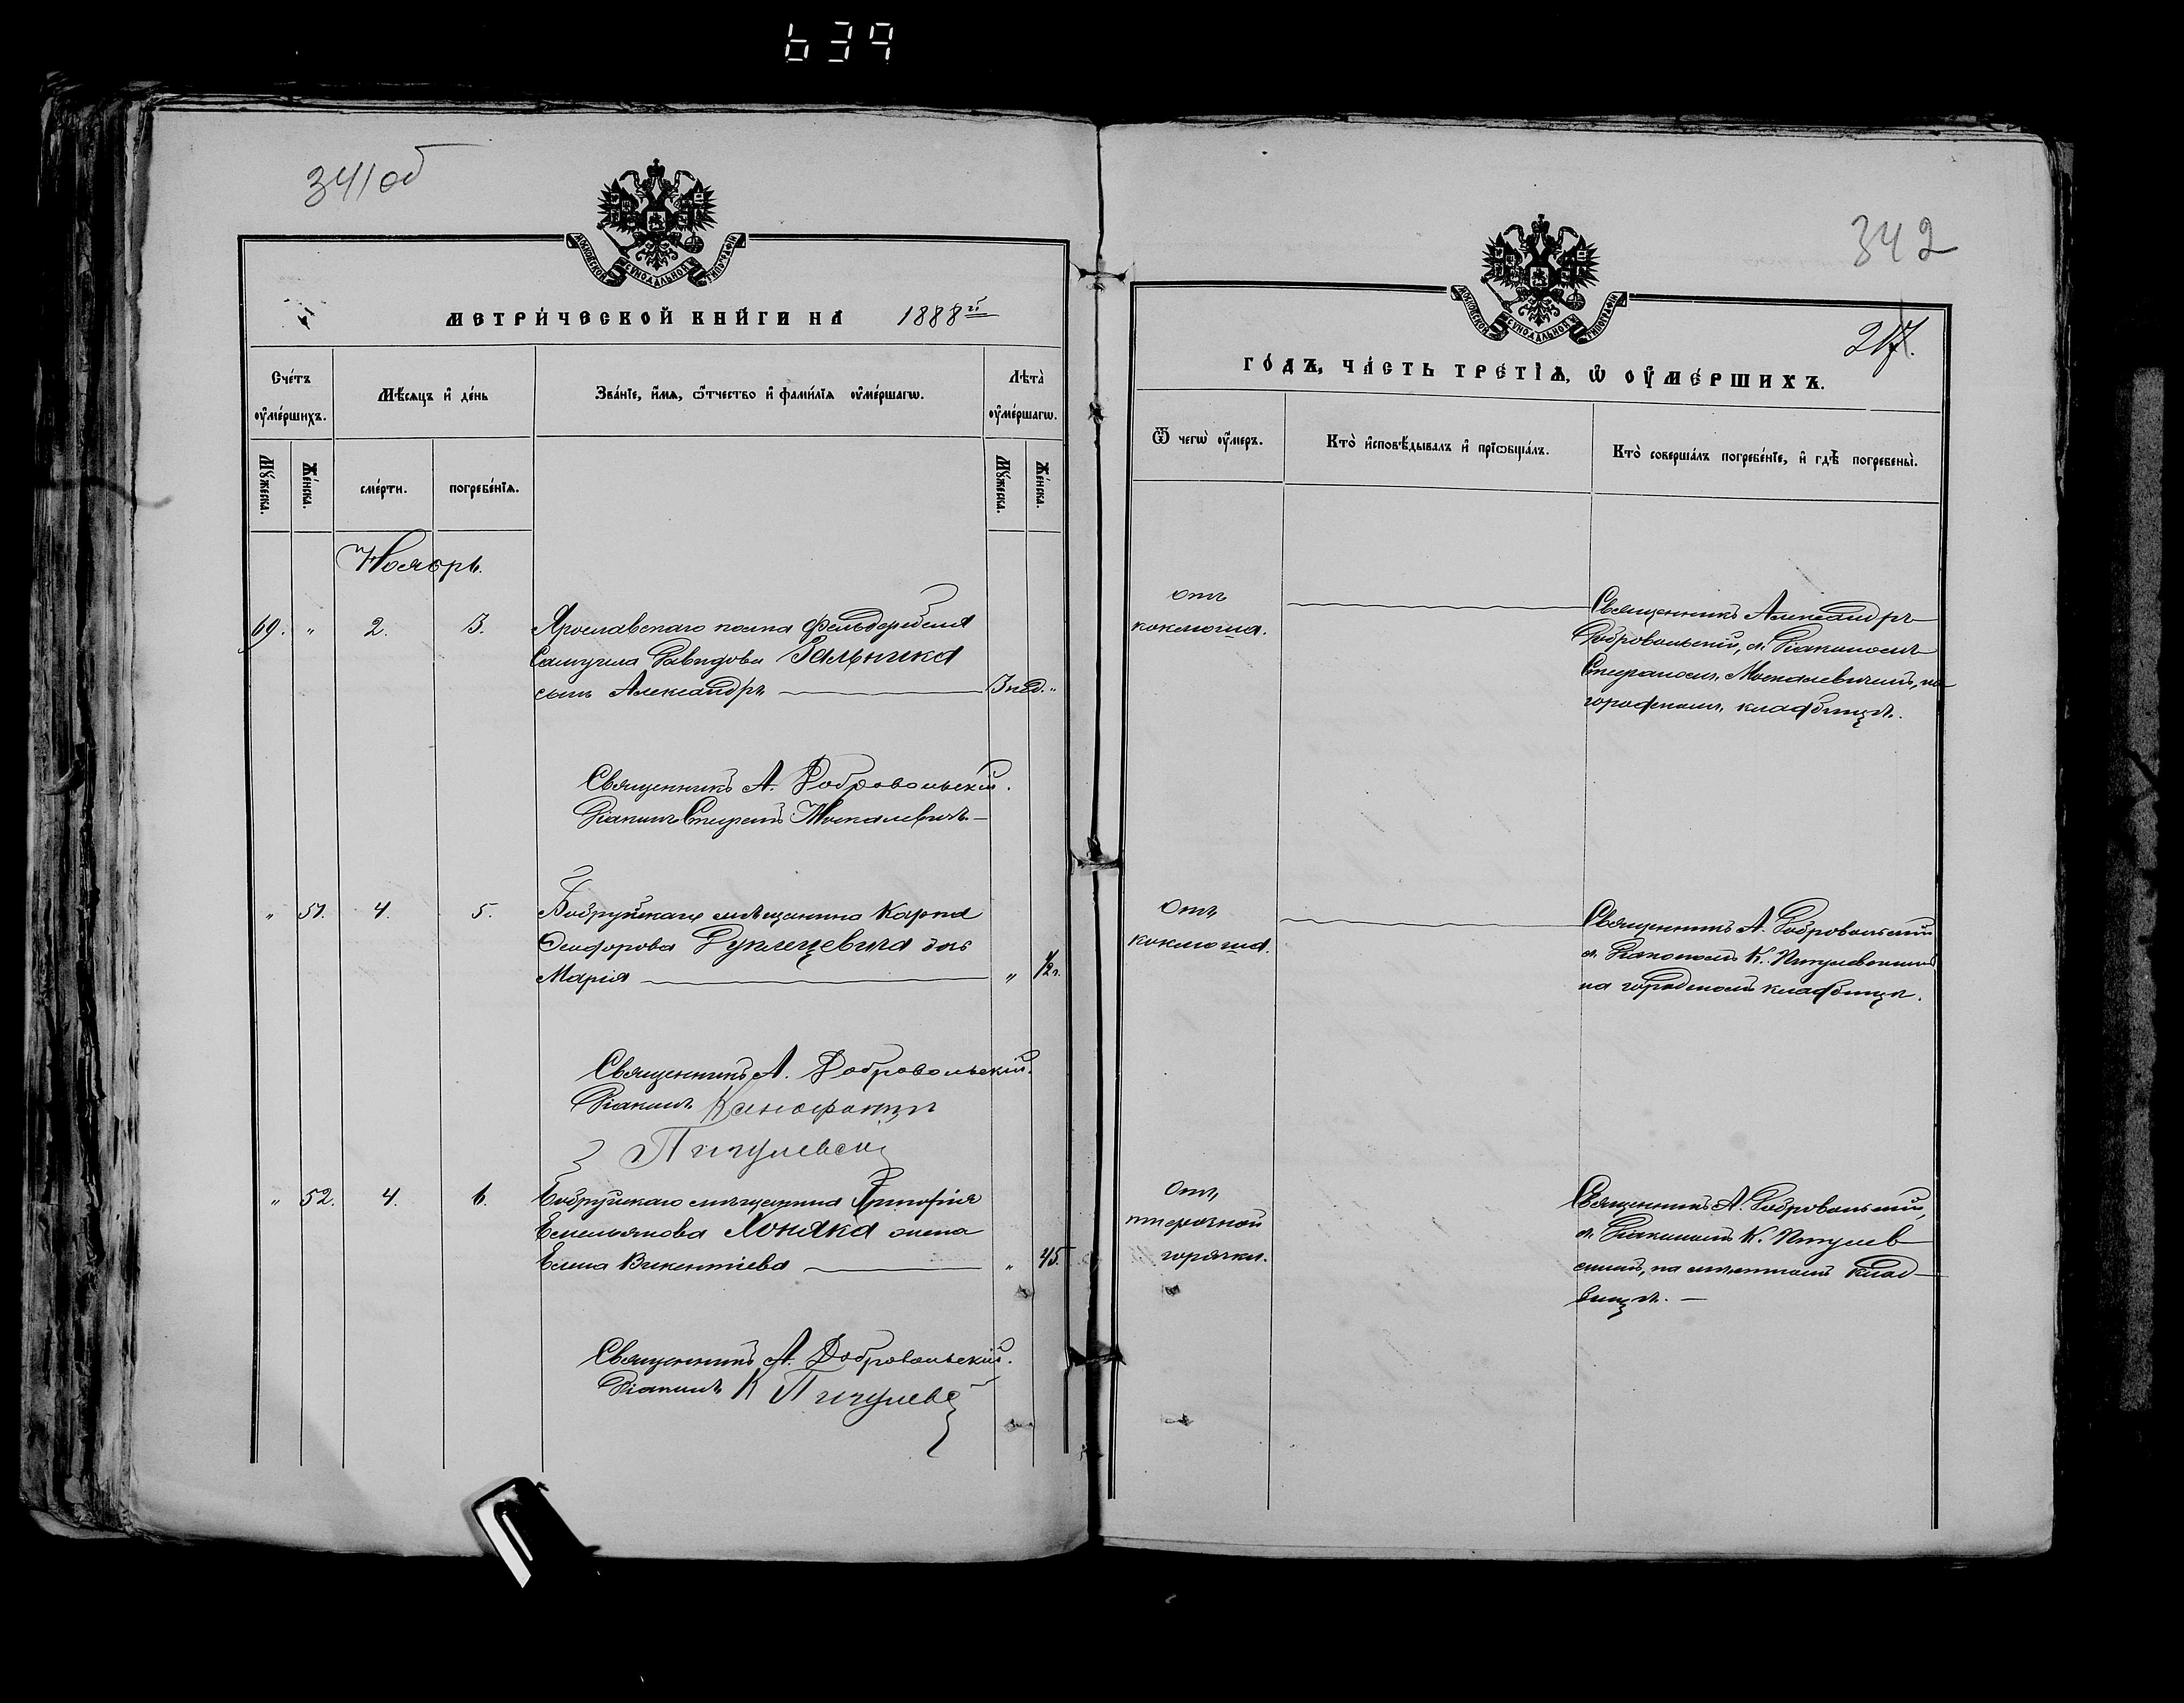 639
341об
МОСКОВСКОЙ СУНОДАЛЬНОЙ ТИПОГРАФІИ
МЕТРИ́ЧЕСКОЙ КНИ́ГИ НА 1888 г.
Сче́тъ оу҆ме́ршихъ.
Мѣ́сяцъ и҆ де́нь
Зва́нїе, и҆́мѧ, ѻ҆́тчество и҆ фами́лїѧ оу҆ме́ршагѡ.
Лѣта̀ оу҆ме́ршагѡ.
Мꙋ́жеска.
Же́нска.
сме́рти.
погребе́нїѧ.
Мꙋ́жеска.
Же́нска.
Ноябрь.
69. „ 2. 3. Ярославскаго полка фельдфебеля
Самуила Давидова Зальника
сынъ Александръ — 3 нед. „
Священникъ А. Добровольскій.
Діаконъ Москалевичъ
„ 51. 4. 5. Бобруйскаго мѣщанина Карпа
Ѳеодорова дочь
Марія — „ 1/2 г.
Священникъ А. Добровольскій.
Діаконъ
Пигулевскій
„ 52. 4. 6. Бобруйскаго мѣщанина Григорія
Емельянова Хоняка жена
Елена Викентіева — „ 45.
Священникъ А. Добровольскій.
Діаконъ К Пигулевс
342
МОСКОВСКОЙ СУНОДАЛЬНОЙ ТИПОГРАФІИ
217.
ГО́ДЪ, ЧА́СТЬ ТРЕ́ТЇѦ, Ѡ҆ ОУ҆МЕ́РШИХЪ.
Ѿ чегѡ̀ оу҆́меръ.
Кто̀ и҆сповѣ́дывалъ и҆ прїѡбща́лъ.
Кто̀ соверша́лъ погребе́нїе, и҆ гдѣ̀ погребены̀.
отъ
коклюша.
Священникъ Александръ
Добровольскій, съ Діакономъ
Москалевичемъ, на
городскомъ кладбищѣ.
Отъ
коклюша.
Священникъ А. Добровольскій
съ Діакономъ К. Пигулевскимъ
на городскомъ кладбищѣ.
Отъ
горячки.
Священникъ А. Добровольскій,
съ Діакономъ К. Пигулев
скимъ, на мѣстномъ клад-
бищѣ. —